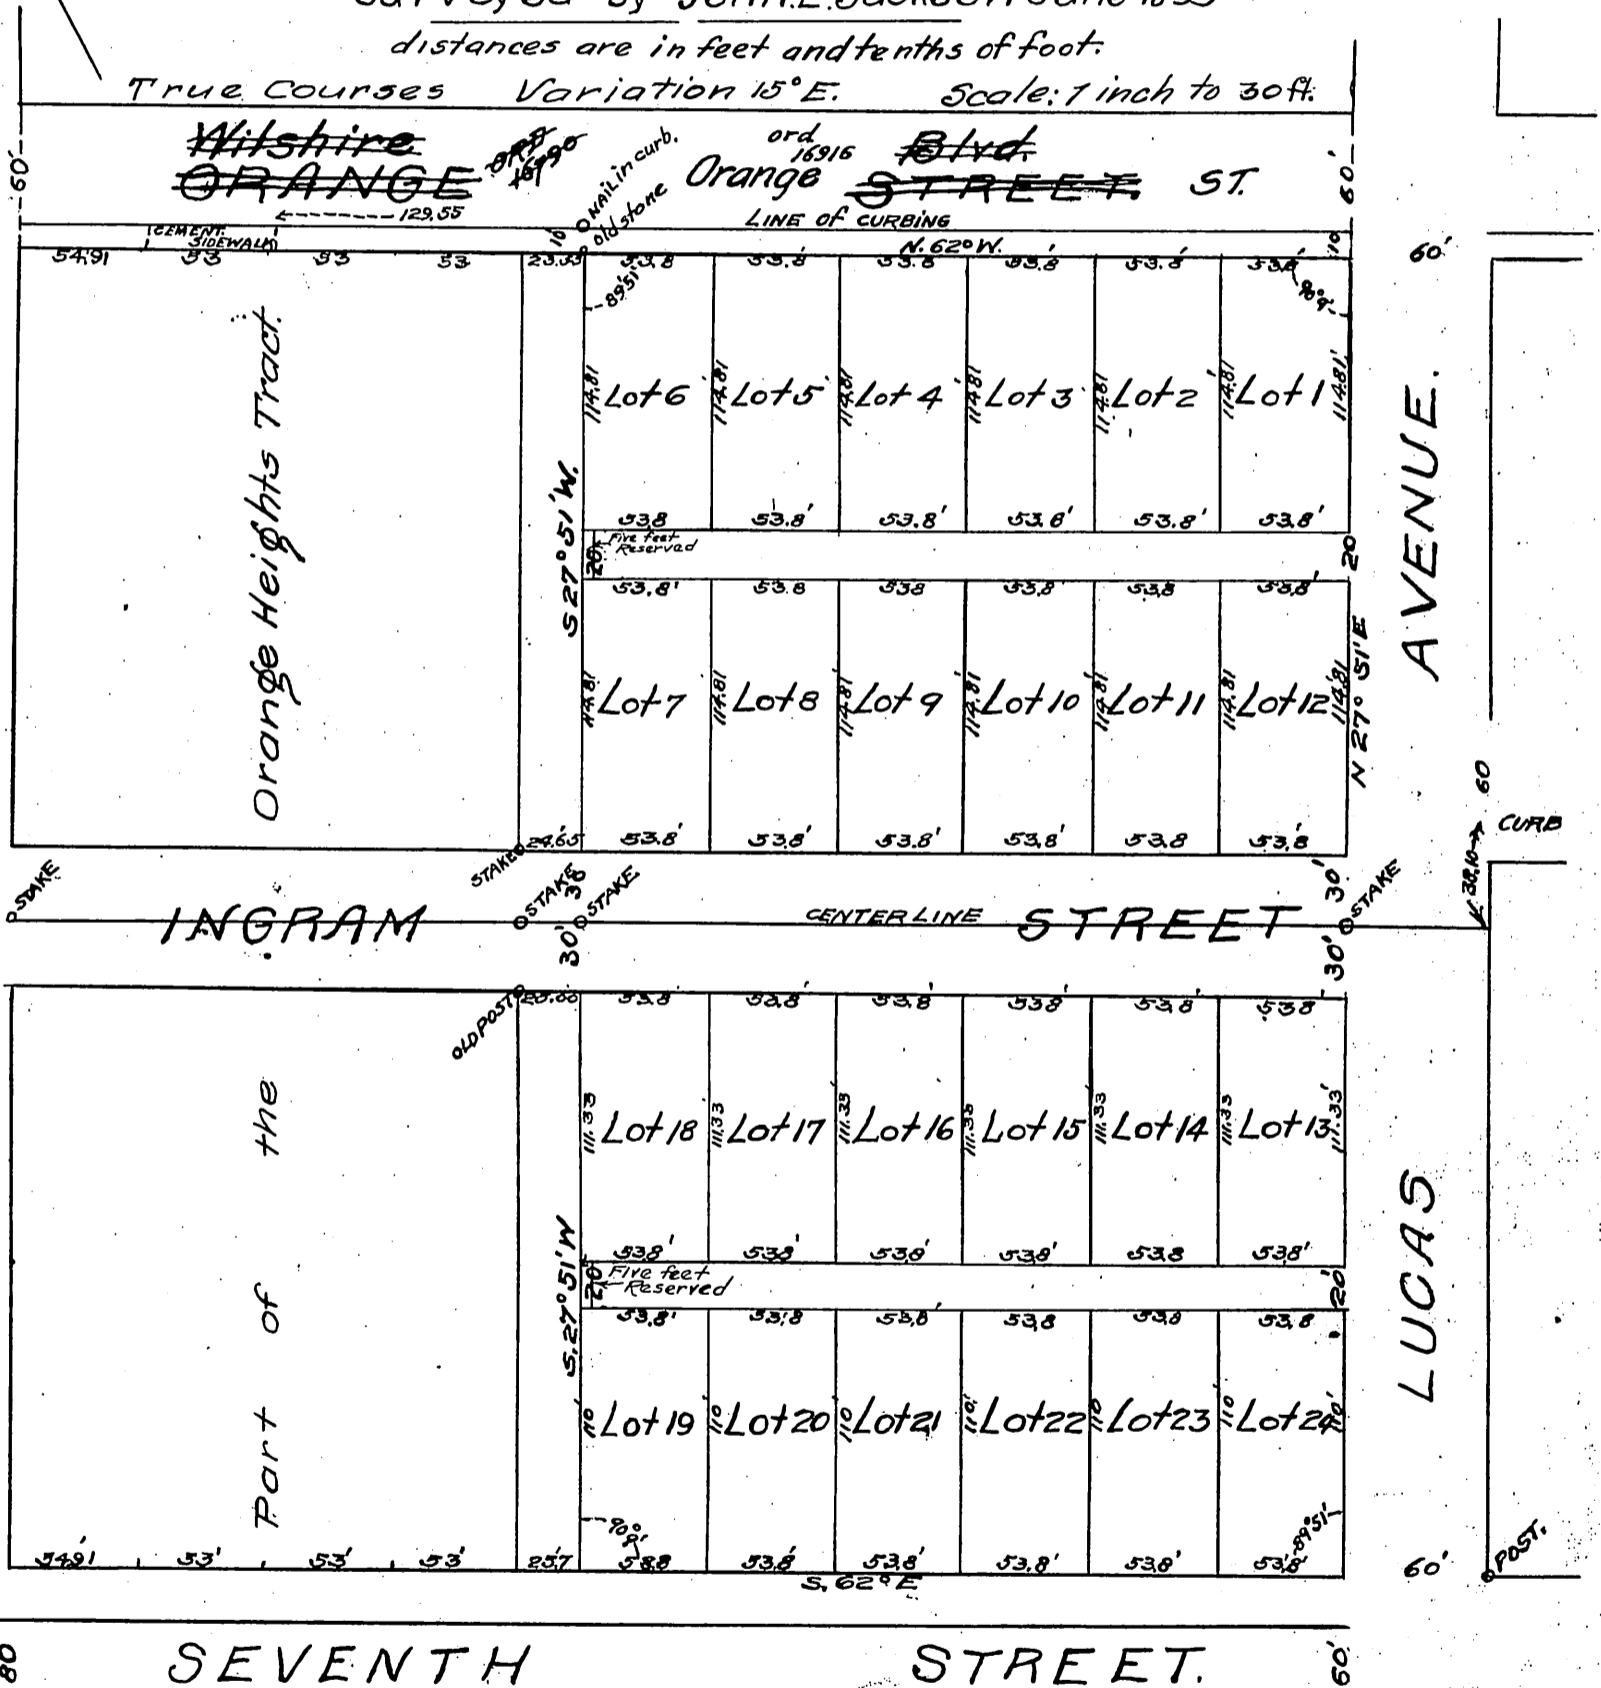 Surveyed by John E. Jackson June
distances are in feet and tenths of foot.
True Courses Variation 15° E. Scale: 1 inch to 30 ft.
Wilshire Blvd.
ORANGE STREET.
ord 16916
Orange ST.
NAIL in curb.
old stone
60' 60'
129.55 LINE OF CURBING
CEMENT SIDEWALK 10 N. 62° W. 10 60'
54.91 53 53 53 53.8 53.8' 53.8 53.8 53.8'
89°51' 90°9'
Orange Heights Tract.
114.81 Lot 6 114.81 Lot 5 114.81 Lot 4 114.81 Lot 3 114.81 Lot 2 114.81 Lot 1 114.81
53.8 53.8' 53.8' 53.8' 53.8' 53.8'
S 27° 51' W.
20 Five feet Reserved 20
53.8' 53.8 53.8 53.8 53.8 53.8'
114.81 Lot 7 114.81 Lot 8 114.81 Lot 9 114.81 Lot 10 114.81 Lot 11 114.81 Lot 12 114.81
N 27° 51' E
AVENUE.
24.65 53.8' 53.8' 53.8' 53.8' 53.8 53.8
60
CURB
38.10
STAKE STAKE STAKE STAKE 30' STAKE
INGRAM CENTER LINE STREET
30' 30'
OLD POST
53.8 53.8 53.8 53.8' 53.8' 53.8'
Part of the
111.33 Lot 18 111.33 Lot 17 111.33 Lot 16 111.33 Lot 15 111.33 Lot 14 111.33 Lot 13 111.33'
53.8' 53.8' 53.8' 53.8' 53.8 53.8'
S. 27° 51' W
20 Five feet Reserved 20'
53.8' 53.8 53.8 53.8 53.8 53.8
110 Lot 19 110 Lot 20 110 Lot 21 110 Lot 22 110 Lot 23 110 Lot 24 110'
LUCAS
90°9' 89°51'
54.91 53' 53' 53' 25.7 53.8 53.8' 53.8' 53.8' 53.8' 53.8'
S. 62° E
60' POST.
80 SEVENTH STREET. 60'